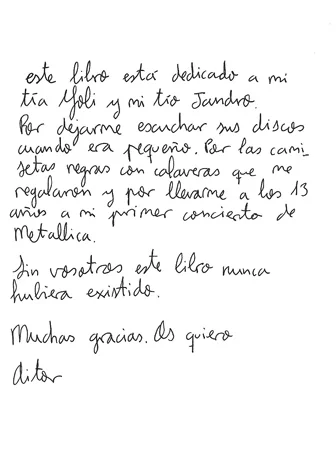 este libro está dedicado a mi
tía Yoli y mi tío Jandro.
Por dejarme escuchar sus discos
cuando era pequeño. Por las cami-
setas negras con calaveras que me
regalaron y por llevarme a los 13
años a mi primer concierto de
Metallica.
Sin vosotros este libro nunca
hubiera existido.
Muchas gracias. Os quiero
Aitor